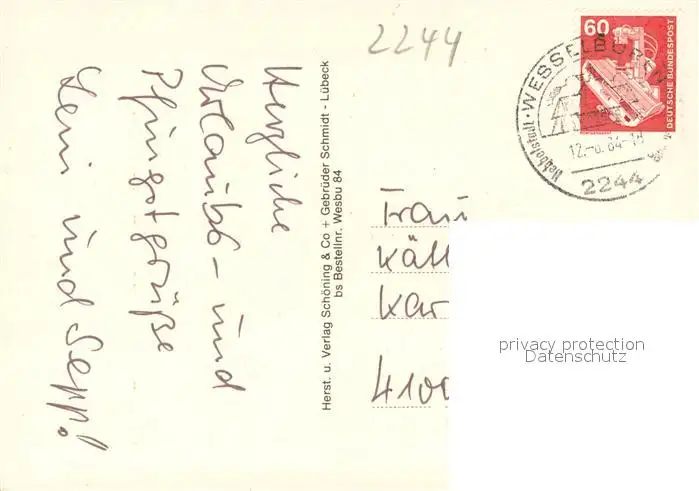 2244
60
DEUTSCHE BUNDESPOST
Hebbelstadt · WESSELBUREN
12.-6.84-18
2244
Herzliche
Urlaubs- und
Pfingstgrüße
Leni und Sepp!
Herst. u. Verlag Schöning & Co + Gebrüder Schmidt - Lübeck
bs Bestellnr. Wesbu 84
Frau
Käth
Kar
4100
privacy protection
Datenschutz